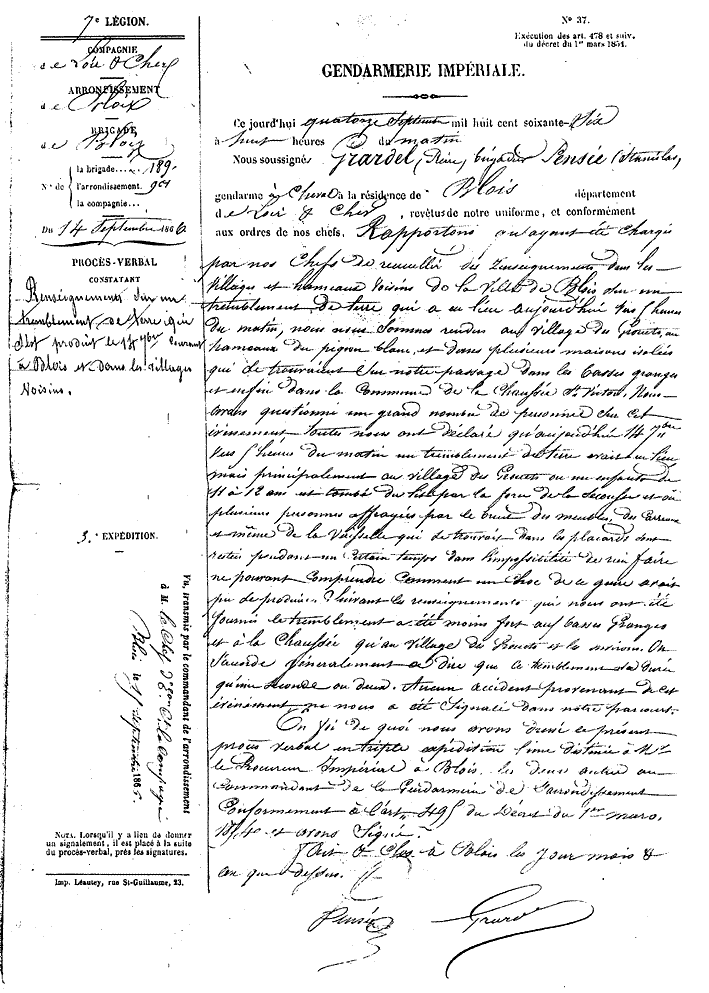 7e LÉGION.
COMPAGNIE
de Loir & Cher
ARRONDISSEMENT
de Blois
BRIGADE
de Blois
N° de
la brigade.... 189
l'arrondissement.
la compagnie...
Du 14 Septembre 1866
PROCÈS-VERBAL
CONSTATANT
Renseignements d'un
tremblement de terre qui
s'est produit le 14 7bre courant
à Blois et dans les villages
voisins.
3.e EXPÉDITION.
Vu, transmis par le commandant de l'arrondissement
à M. le Chef d'Eson Ct la Compagnie
Blois le 15 septembre 1866.
NOTA. Lorsqu'il y a lieu de donner
un signalement, il est placé à la suite
du procès-verbal, près les signatures.
Imp. Léautey, rue St-Guillaume, 23.
N° 37.
Exécution des art. 478 et suiv.
du décret du 1er mars 1854.
GENDARMERIE IMPÉRIALE.
Ce jourd'hui quatorze Septembre mil huit cent soixante-Six
à huit heures du matin
Nous soussignés Grardel, brigadier Pensée (Stanislas)
gendarme à Cheval à la résidence de Blois département
de Loir & Cher, revêtus de notre uniforme, et conformément
aux ordres de nos chefs. Rapportons qu'ayant été Chargés
par nos Chefs de recueillir des renseignements dans les
villages et hameaux voisins de la Ville de Blois sur un
tremblement de terre qui a eu lieu aujourd'hui vers 5 heures
du matin, nous nous sommes rendus au village des Grouets, au
hameaux du pigeon blanc, et dans plusieurs maisons isolées
qui se trouvaient sur notre passage dans les basses granges
et enfin dans la Commune de la Chaussée St Victor. Nous
avons questionné un grand nombre de personnes sur cet
événement toutes nous ont déclaré qu'aujourd'hui 14 7bre
vers 5 heures du matin un tremblement de terre avait eu lieu
mais principalement au village des Grouets ou un enfant de
11 à 12 ans est tombé du lit par la force de la secousse et où
plusieurs personnes effrayées par le bruit des meubles, des carreaux
et même de la vaisselle qui se trouvait dans les placards sont
restées pendant un certain temps dans l'impossibilité de rien faire
ne pouvant comprendre comment un choc de ce genre avait
pu se produire. Suivant les renseignements qui nous ont été
fournis le tremblement a été moins fort aux basses Granges
et à la Chaussée qu'au village des Grouets et les environs. On
s'accorde généralement à dire que ce tremblement n'a duré
qu'une seconde ou deux. Aucun accident provenant de cet
événement ne nous a été signalé dans notre parcours.
En foi de quoi nous avons dressé le présent
procès verbal en triple expédition l'une destinée à Mr
le Procureur Impérial à Blois, les deux autres au
Commandant de la Gendarmerie de l'arrondissement
Conformément à l'art. 495 du Décret du 1er mars
1854 et avons signé.
Fait & Clos à Blois les jour mois &
an que dessus.
Pensée
Grardel